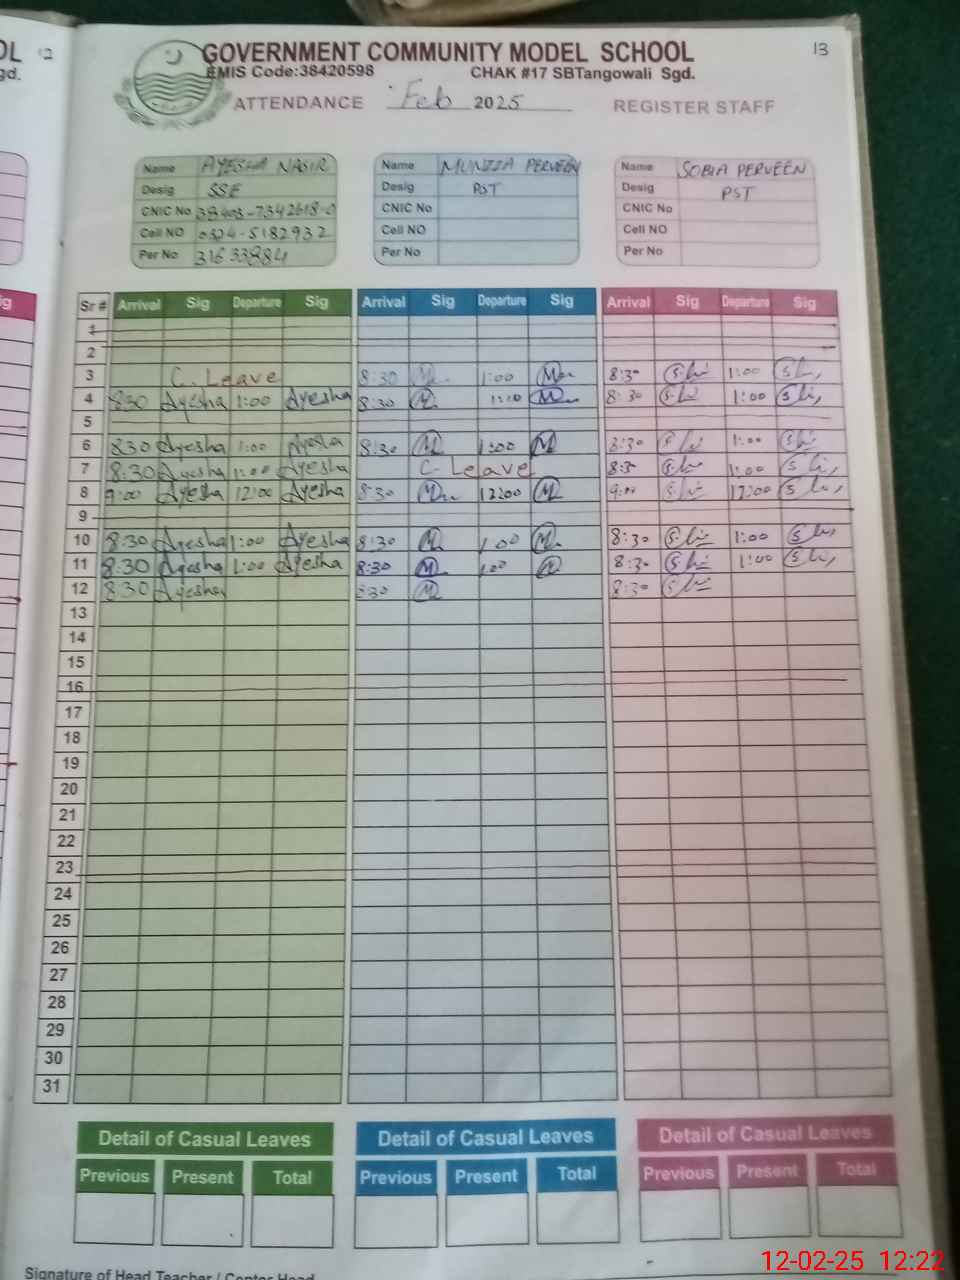 OL 12
gd.
GOVERNMENT COMMUNITY MODEL SCHOOL 13
EMIS Code:38420598 CHAK #17 SBTangowali Sgd.
ATTENDANCE Feb 2025 REGISTER STAFF
Name AYESHA NASIR Name MUNZZA PERVEEN Name SOBIA PERVEEN
Desig SSE Desig PST Desig PST
CNIC No 38403-7342618-0 CNIC No CNIC No
Cell NO 0324-5182932 Cell NO Cell NO
Per No 31633884 Per No Per No
ig
Sr # Arrival Sig Departure Sig Arrival Sig Departure Sig Arrival Sig Departure Sig
1
2
3 C. Leave 8:30 1:00 8:30 1:00
4 830 Ayesha 1:00 Ayesha 8:30 8:30 1:00
5
6 830 Ayesha 1:00 Ayesha 8:30 1:00 8:30 1:00
7 8:30 Ayesha 1:00 Ayesha C. Leave 8:30 1:00
8 9:00 Ayesha 12:00 Ayesha 8:30 12:00 9:00 12:00
9
10 8:30 Ayesha 1:00 Ayesha 8:30 1:00 8:30 1:00
11 8:30 Ayesha 1:00 Ayesha 8:30 1:00 8:30 1:00
12 8:30 Ayesha 8:30 8:30
13
14
15
16
17
18
19
20
21
22
23
24
25
26
27
28
29
30
31
Detail of Casual Leaves Detail of Casual Leaves Detail of Casual Leaves
Previous Present Total Previous Present Total Previous Present Total
Signature of Head Teacher / Center Head
12-02-25 12:22